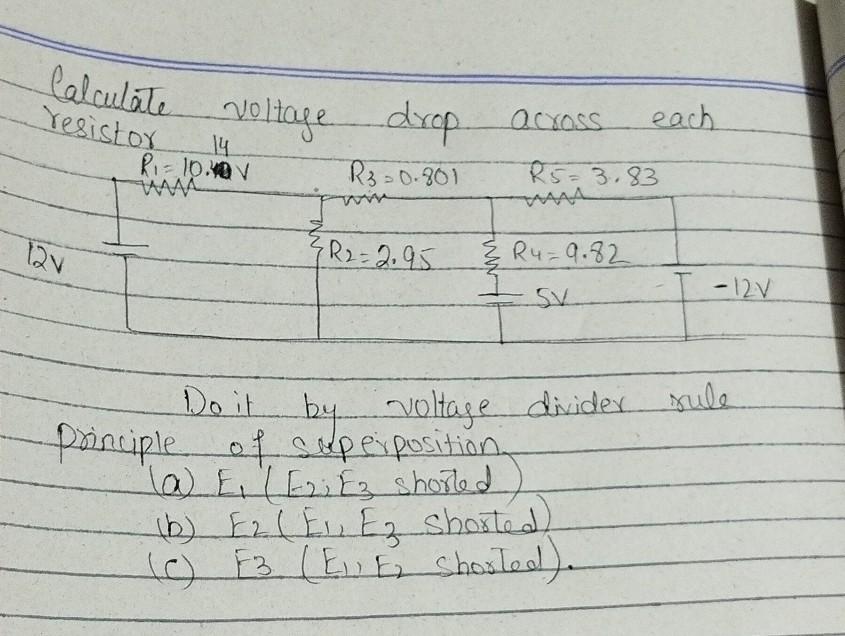 Calculate voltage drop across each
resistor
14
R1 = 10. V R3 = 0.801 R5 = 3.83
12V R2 = 2.95 R4 = 9.82
5V -12V
Do it by voltage divider rule
principle of superposition
(a) E1 (E2, E3 shorted)
(b) E2 (E1, E3 shorted)
(c) E3 (E1, E2 shorted).